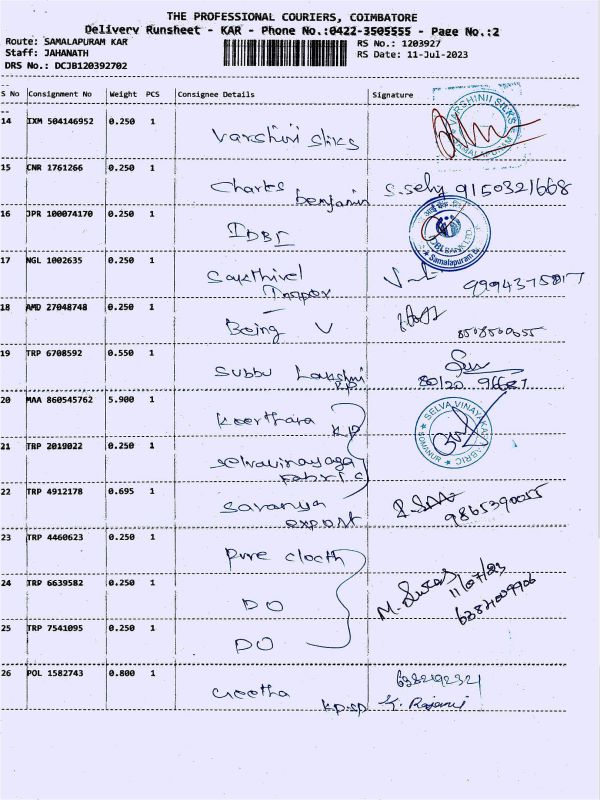 THE PROFESSIONAL COURIERS, COIMBATORE
Delivery Runsheet - KAR - Phone No.:0422-3505555 - Page No.:2
Route: SAMALAPURAM KAR
RS No.: 1203927
Staff: JAHANATH
RS Date: 11-Jul-2023
DRS No.: DCJB120392702
S No Consignment No Weight PCS Consignee Details Signature
14 IXM 504146952 0.250 1 Varshini Silks
VARSHINII SILKS SAMALAPURAM
15 CNR 1761266 0.250 1 Charles benjamin S.selvy 9150321668
16 JPR 100074170 0.250 1 IDBI
IDBI BANK LTD. Samalapuram
17 NGL 1002635 0.250 1 Sakthivel
18 AMD 27048748 0.250 1 Being V
19 TRP 6708592 0.550 1 Subbu Lakshmi
20 MAA 860545762 5.900 1 Keerthana K.P
SELVA VINAYAKA FABRIC SOMANUR
21 TRP 2019022 0.250 1 Selvavinayaga Fabrics
22 TRP 4912178 0.695 1 Saranya export 9865390055
23 TRP 4460623 0.250 1 Pure clooth
24 TRP 6639582 0.250 1 DO
M. 11/07/23
6382009906
25 TRP 7541095 0.250 1 DO
26 POL 1582743 0.800 1 Geetha 6382192321
K. Rajani